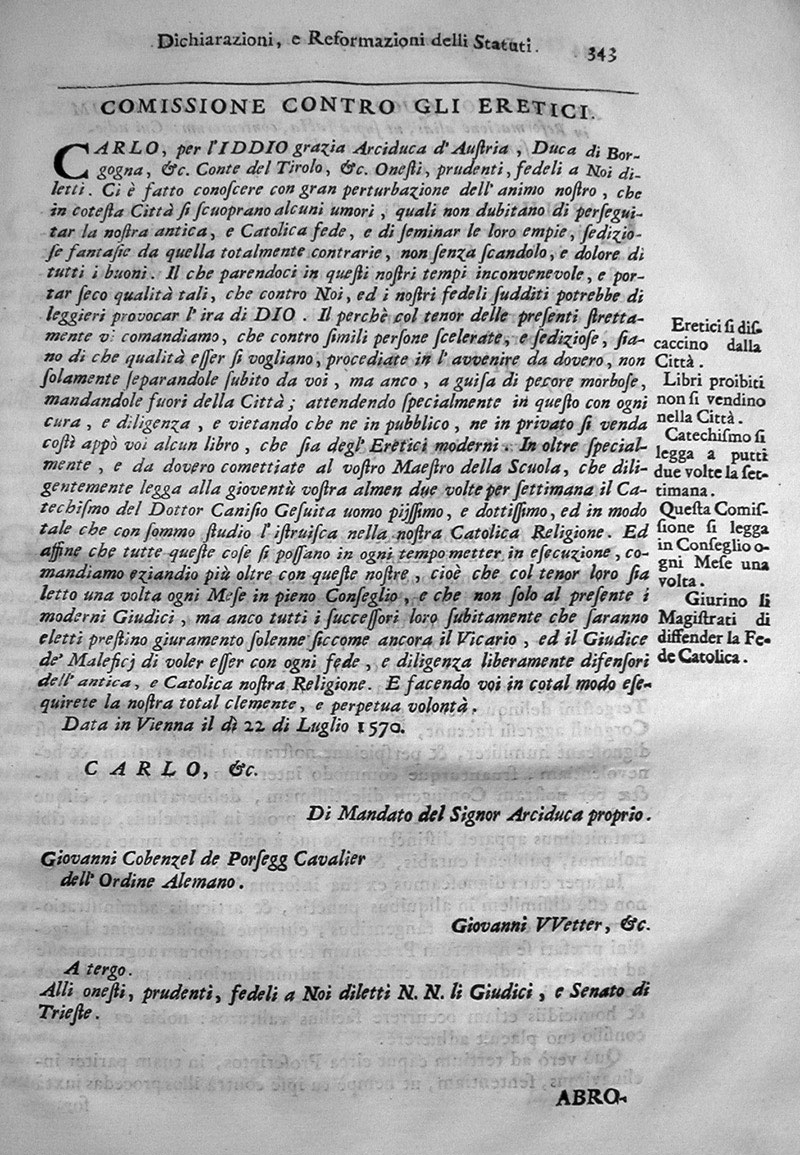 Dichiarazioni, e Reformazioni delli Statuti. 343
COMISSIONE CONTRO GLI ERETICI.
CARLO, per l'IDDIO grazia Arciduca d'Auſtria, Duca di Bor-
gogna, &c. Conte del Tirolo, &c. Oneſti, prudenti, fedeli a Noi di-
letti. Ci è fatto conoſcere con gran perturbazione dell' animo noſtro, che
in coteſta Città ſi ſcuoprano alcuni umori, quali non dubitano di perſegui-
tar la noſtra antica, e Catolica fede, e di ſeminar le loro empie, ſedizio-
ſe fantaſie da quella totalmente contrarie, non ſenza ſcandolo, e dolore di
tutti i buoni. Il che parendoci in queſti noſtri tempi inconvenevole, e por-
tar ſeco qualità tali, che contro Noi, ed i noſtri fedeli ſudditi potrebbe di
leggieri provocar l'ira di DIO. Il perchè col tenor delle preſenti ſtretta-
mente vi comandiamo, che contro ſimili perſone ſcelerate, e ſedizioſe, ſia-
no di che qualità eſſer ſi vogliano, procediate in l' avvenire da dovero, non
ſolamente ſeparandole ſubito da voi, ma anco, a guiſa di pecore morboſe,
mandandole fuori della Città; attendendo ſpecialmente in queſto con ogni
cura, e diligenza, e vietando che ne in pubblico, ne in privato ſi venda
coſtì appò voi alcun libro, che ſia degl' Eretici moderni. In oltre ſpecial-
mente, e da dovero comettiate al voſtro Maeſtro della Scuola, che dili-
gentemente legga alla gioventù voſtra almen due volte per ſettimana il Ca-
techiſmo del Dottor Caniſio Geſuita uomo pijſſimo, e dottiſſimo, ed in modo
tale che con ſommo ſtudio l'iſtruiſca nella noſtra Catolica Religione. Ed
affine che tutte queſte coſe ſi poſſano in ogni tempo metter in eſecuzione, co-
mandiamo eziandio più oltre con queſte noſtre, cioè che col tenor loro ſia
letto una volta ogni Meſe in pieno Conſeglio, e che non ſolo al preſente i
moderni Giudici, ma anco tutti i ſucceſſori loro ſubitamente che ſaranno
eletti preſtino giuramento ſolenne ſiccome ancora il Vicario, ed il Giudice
de' Maleficj di voler eſſer con ogni fede, e diligenza liberamente difenſori
dell' antica, e Catolica noſtra Religione. E facendo voi in cotal modo eſe-
quirete la noſtra total clemente, e perpetua volontà.
Data in Vienna il dì 22 di Luglio 1570.
Eretici ſi diſ-
caccino dalla
Città.
Libri proibiti
non ſi vendino
nella Città.
Catechiſmo ſi
legga a putti
due volte la ſet-
timana.
Queſta Comiſ-
ſione ſi legga
in Conſeglio o-
gni Meſe una
volta.
Giurino li
Magiſtrati di
diffender la Fe-
de Catolica.
CARLO, &c.
Di Mandato del Signor Arciduca proprio.
Giovanni Cobenzel de Porſegg Cavalier
dell' Ordine Alemano.
Giovanni VVetter, &c.
A tergo.
Alli oneſti, prudenti, fedeli a Noi diletti N. N. li Giudici, e Senato di
Trieſte.
ABRO-